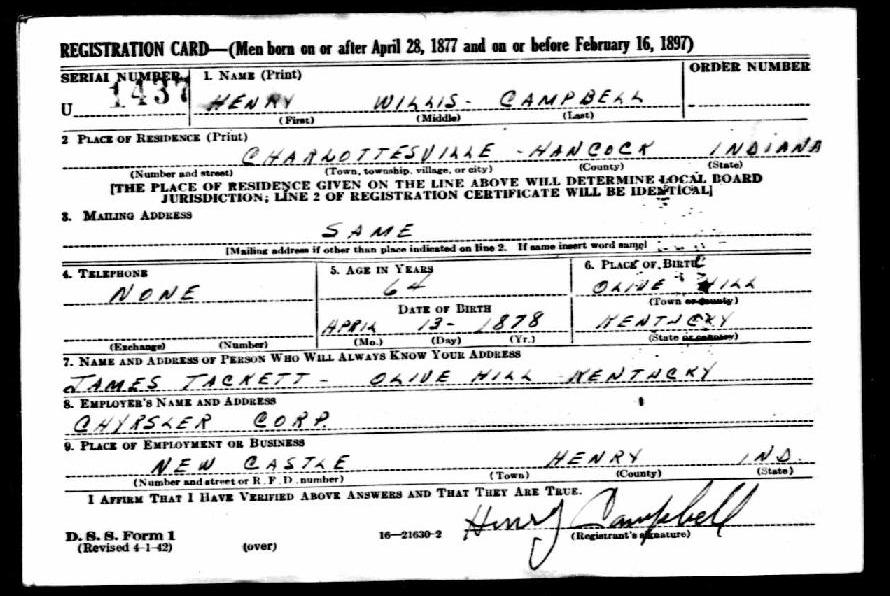 REGISTRATION CARD—(Men born on or after April 28, 1877 and on or before February 16, 1897)
SERIAL NUMBER 1. NAME (Print) ORDER NUMBER
U 1437 HENRY WILLIS - CAMPBELL
(First) (Middle) (Last)
2 PLACE OF RESIDENCE (Print)
CHARLOTTESVILLE - HANCOCK INDIANA
(Number and street) (Town, township, village, or city) (County) (State)
[THE PLACE OF RESIDENCE GIVEN ON THE LINE ABOVE WILL DETERMINE LOCAL BOARD
JURISDICTION; LINE 2 OF REGISTRATION CERTIFICATE WILL BE IDENTICAL]
3. MAILING ADDRESS
SAME
[Mailing address if other than place indicated on line 2. If same insert word same]
4. TELEPHONE 5. AGE IN YEARS 6. PLACE OF BIRTH
NONE 64 OLIVE HILL
DATE OF BIRTH (Town or county)
APRIL 13- 1878 KENTUCKY
(Exchange) (Number) (Mo.) (Day) (Yr.) (State or country)
7. NAME AND ADDRESS OF PERSON WHO WILL ALWAYS KNOW YOUR ADDRESS
JAMES TACKETT - OLIVE HILL KENTUCKY
8. EMPLOYER'S NAME AND ADDRESS
CHYRSLER CORP.
9. PLACE OF EMPLOYMENT OR BUSINESS
NEW CASTLE HENRY IND.
(Number and street or R. F. D. number) (Town) (County) (State)
I AFFIRM THAT I HAVE VERIFIED ABOVE ANSWERS AND THAT THEY ARE TRUE.
Henry Campbell
D. S. S. Form 1 16—21630-2 (Registrant's signature)
(Revised 4-1-42) (over)